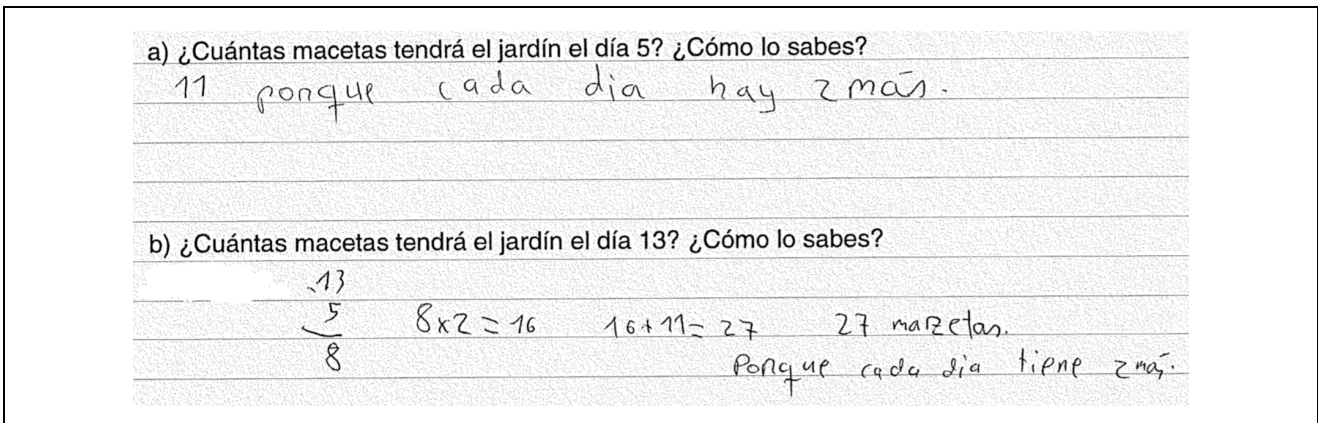 a) ¿Cuántas macetas tendrá el jardín el día 5? ¿Cómo lo sabes?
11 porque cada dia hay 2 más.
b) ¿Cuántas macetas tendrá el jardín el día 13? ¿Cómo lo sabes?
13
5 8x2=16 16+11=27 27 mazetas.
8 Porque cada dia tiene 2 más.